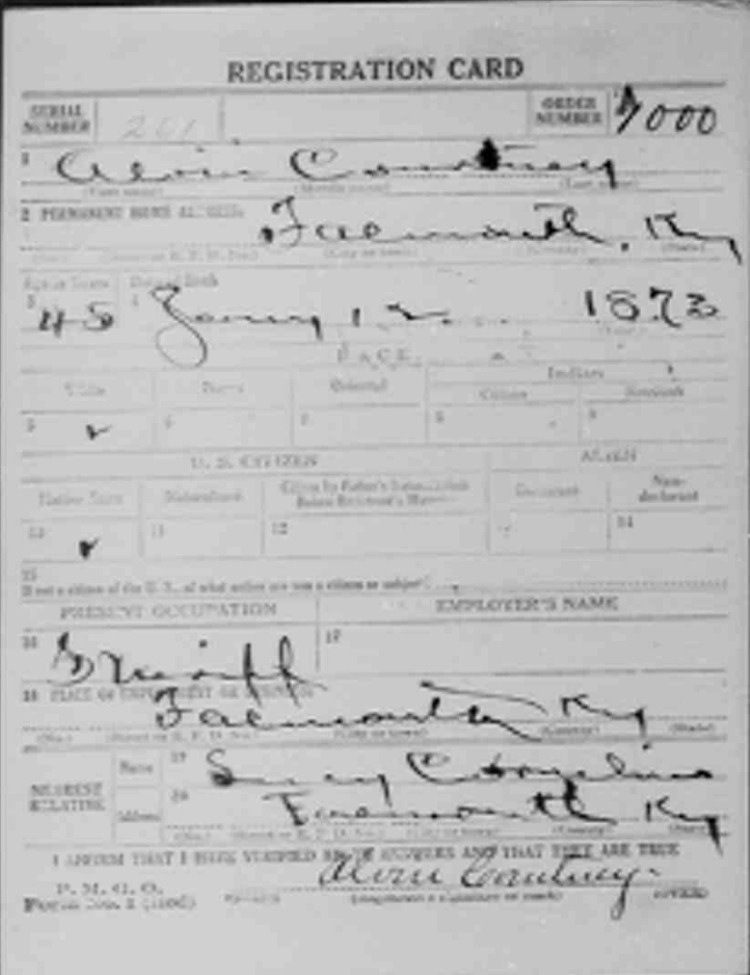 REGISTRATION CARD
SERIAL NUMBER 201 ORDER NUMBER 1000
1 Alvin Courtney
(First name) (Middle name) (Last name)
2 PERMANENT HOME ADDRESS Falmouth, Ky
(No.) (Street or R. F. D. No.) (City or town) (County) (State)
Age in Years Date of Birth
3 45 4 1873
RACE
White Negro Oriental Indian
Citizen Noncitizen
5 ✓ 6 7 8 9
U. S. CITIZEN ALIEN
Native Born Naturalized Citizen by Father's Naturalization Before Registrant's Majority Declarant Non-declarant
10 ✓ 11 12 13 14
15
If not a citizen of the U. S., of what nation are you a citizen or subject?
PRESENT OCCUPATION EMPLOYER'S NAME
16 17
18 PLACE OF EMPLOYMENT OR BUSINESS
Falmouth Ky
(No.) (Street or R. F. D. No.) (City or town) (County) (State)
NEAREST RELATIVE Name 19
Address 20 Falmouth Ky
(No.) (Street or R. F. D. No.) (City or town) (County) (State)
I AFFIRM THAT I HAVE VERIFIED ABOVE ANSWERS AND THAT THEY ARE TRUE
P. M. G. O.
Form No. 1 (Red) Alvin Courtney
(Registrant's signature or mark) (OVER)